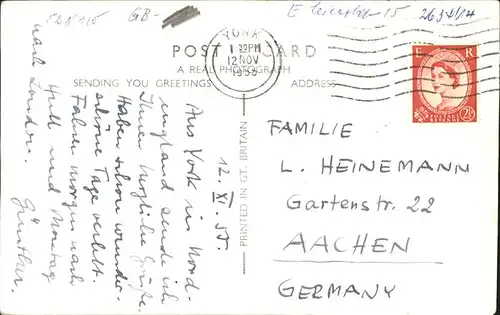 GB-
E Leicester 15
2634/14
YORK
1 30PM
12 NOV
1955
POST CARD
A REAL PHOTOGRAPH
SENDING YOU GREETINGS
ADDRESS
E R
POSTAGE REVENUE
2½
PRINTED IN GT. BRITAIN
12. XI. 55.
Aus York in Nord-
england sende ich
Ihnen herzliche Grüße.
Haben schon wunder-
schöne Tage verlebt.
Fahren morgen nach
Hull und Montag
nach London.
Günther.
FAMILIE
L. HEINEMANN
Gartenstr. 22
AACHEN
GERMANY